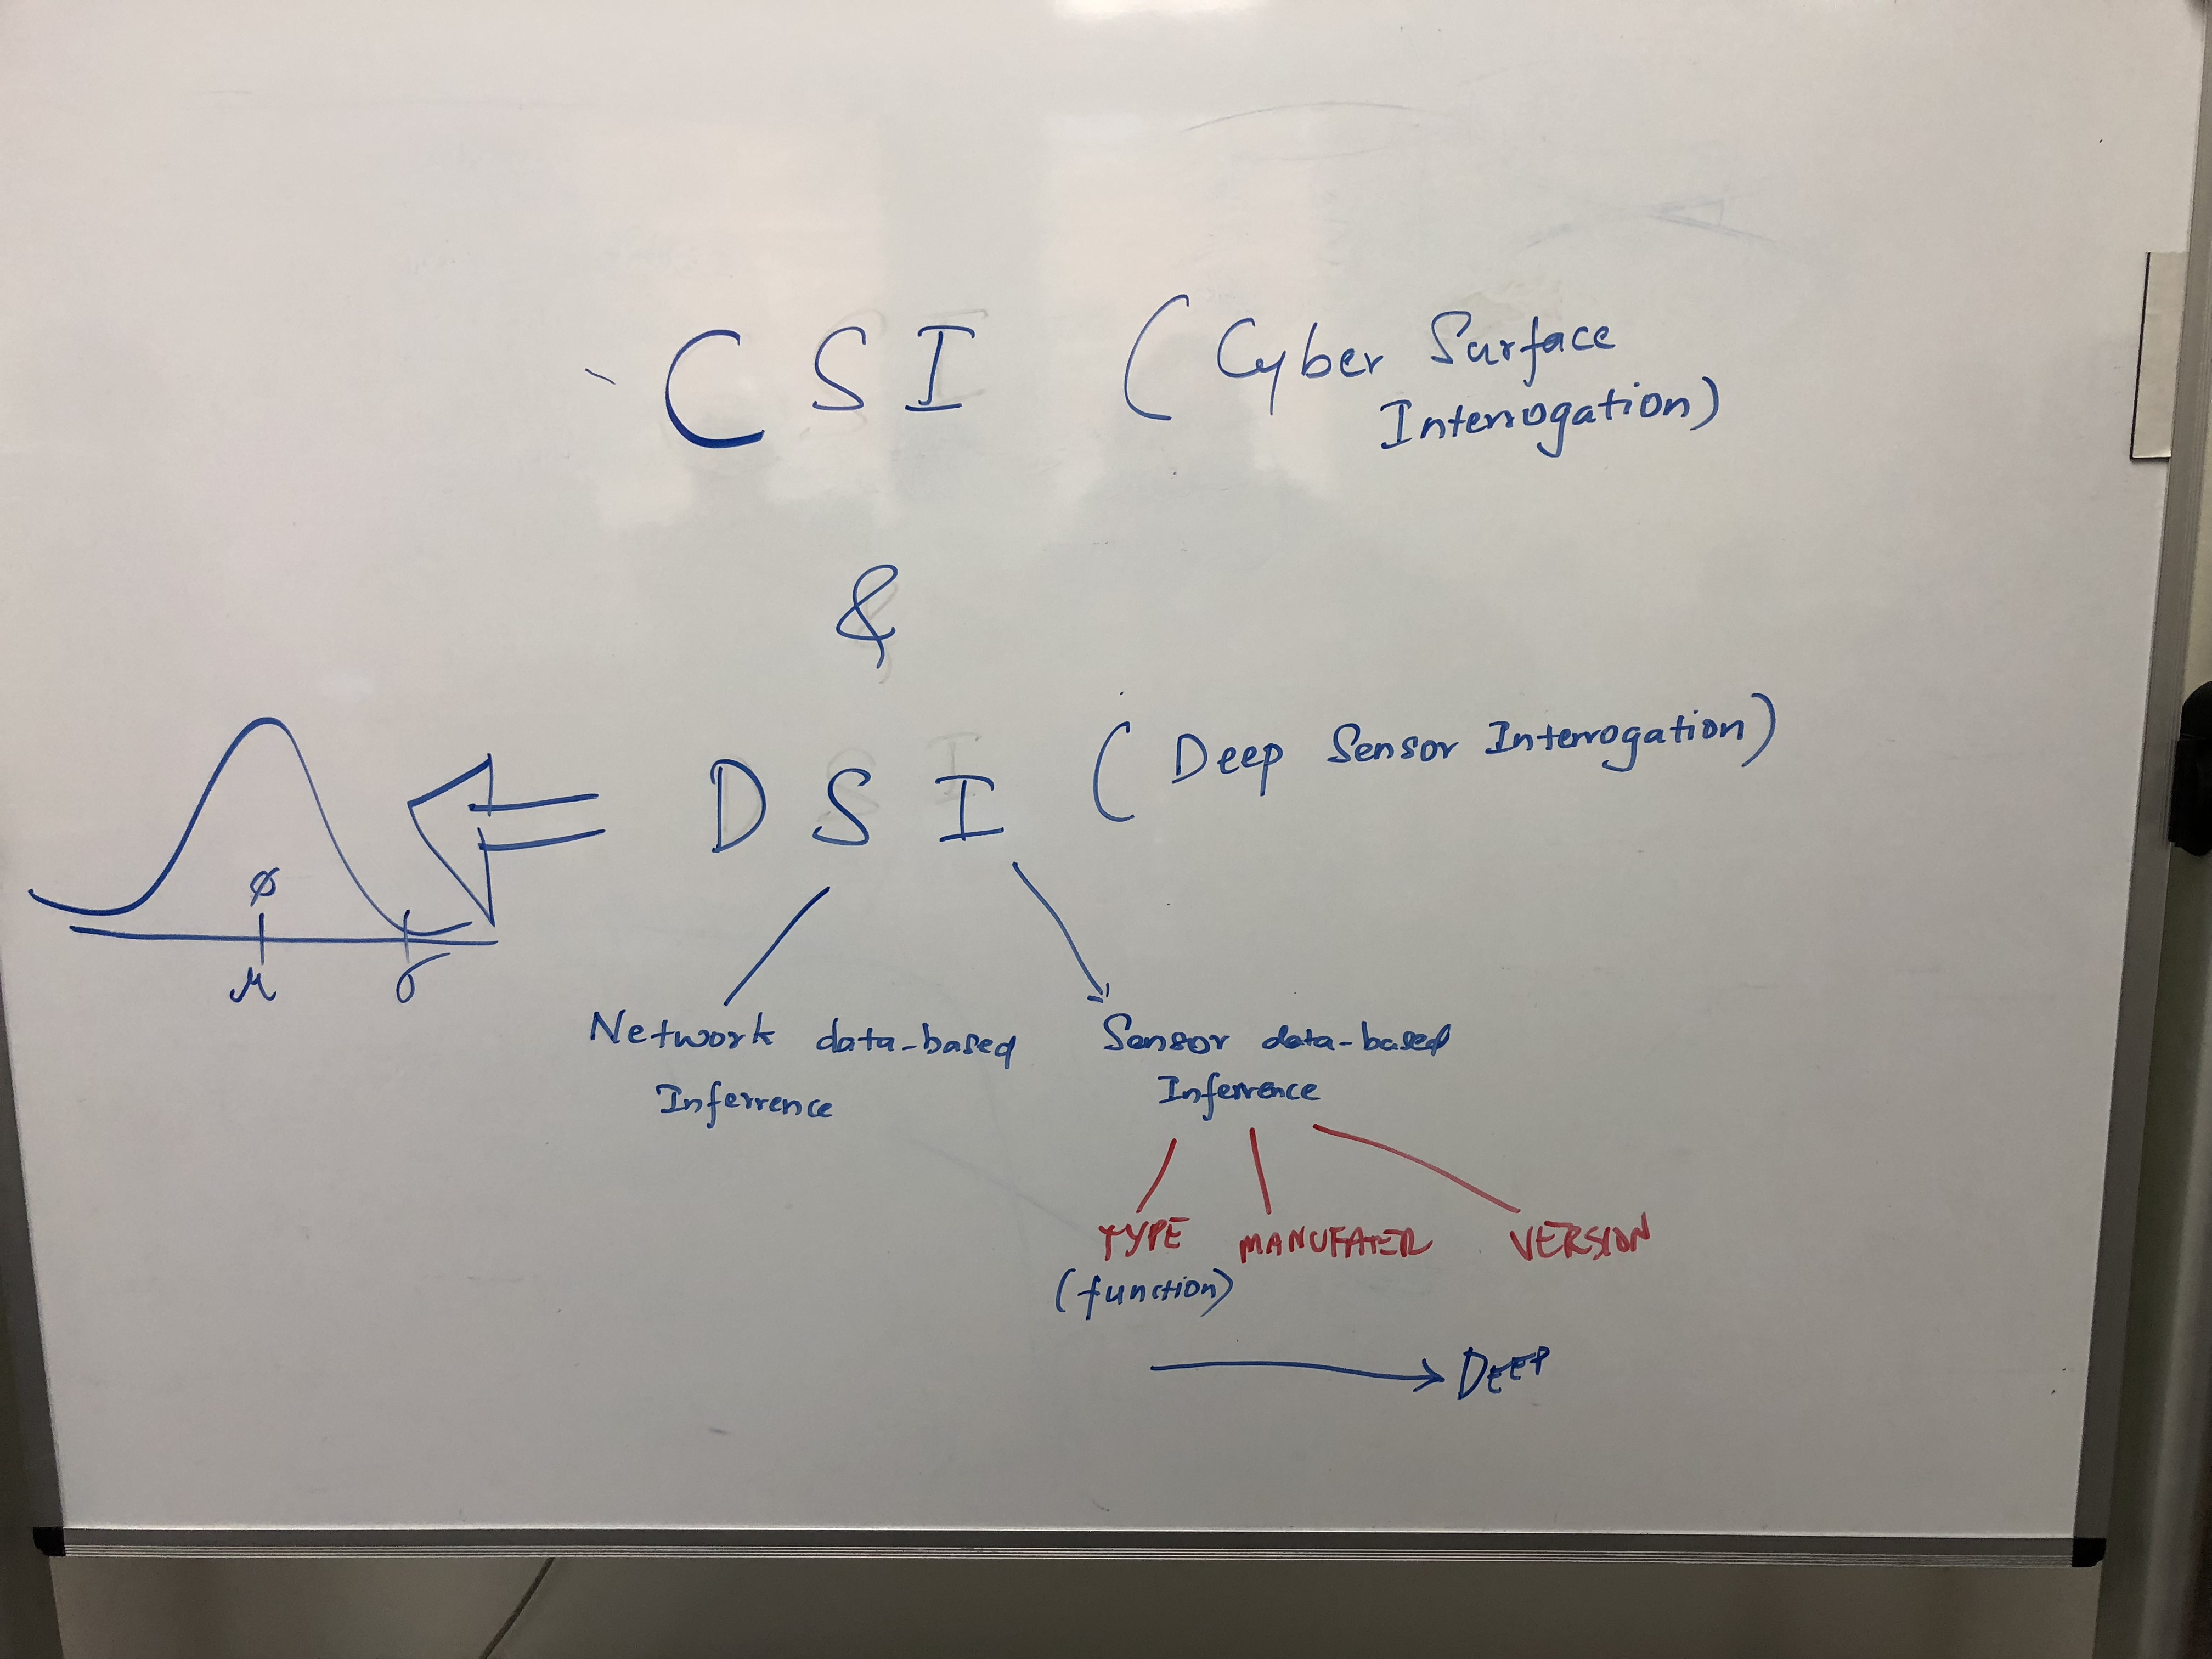 CSI (Cyber Surface
Interrogation)
&
DSI (Deep Sensor Interrogation)
ϕ
μ σ
Network data-based
Inferrence
Sensor data-based
Inferrence
TYPE MANUFATER VERSION
(function)
DEEP